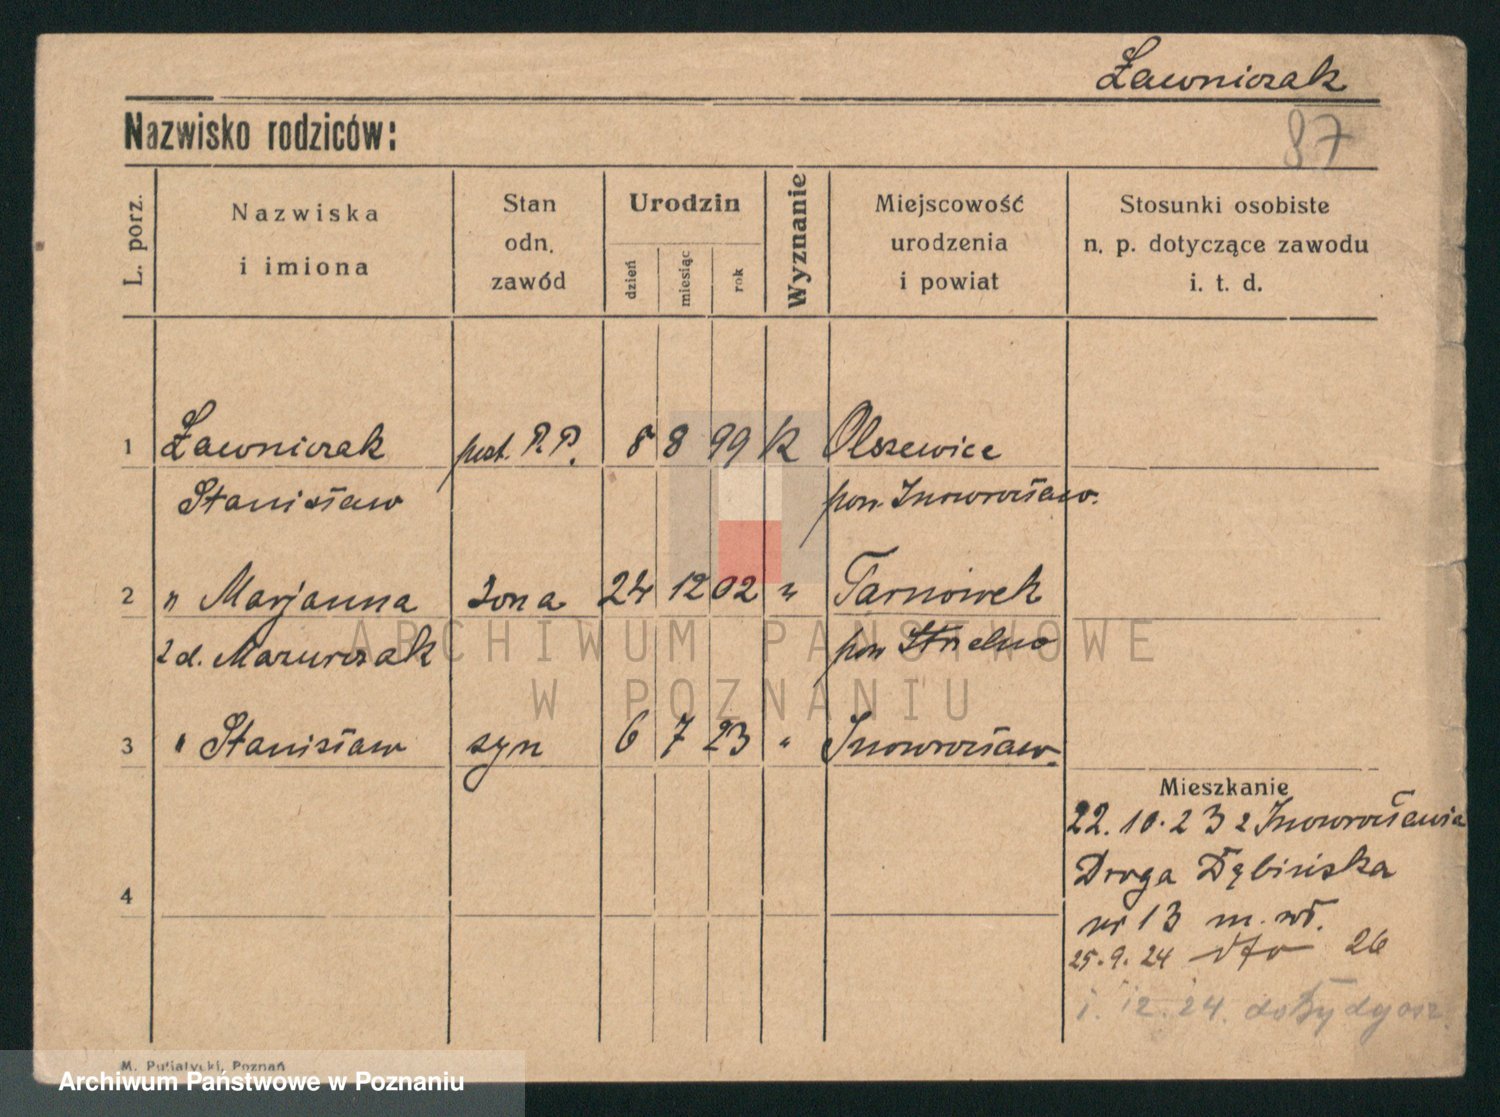 Ławniczak
Nazwisko rodziców:
87
L. porz.
Nazwiska
i imiona
Stan
odn.
zawód
Urodzin
dzień
miesiąc
rok
Wyznanie
Miejscowość
urodzenia
i powiat
Stosunki osobiste
n. p. dotyczące zawodu
i. t. d.
1 Ławniczak post. P.P. 8 8 99 k Olszewice
Stanisław pow. Inowrocław.
2 " Marjanna żona 24 12 02 " Tarnówek
z d. Mazurczak pow Strzelno
3 " Stanisław syn 6 7 23 " Inowrocław.
Mieszkanie
22.10.23 z Inowrocławia
Droga Dębińska
4
nr 13 m. wł.
25.9.24 dto 26
1. 12. 24. do Bydgosz.
M. Putiatycki, Poznań
ARCHIWUM PAŃSTWOWE
W POZNANIU
Archiwum Państwowe w Poznaniu